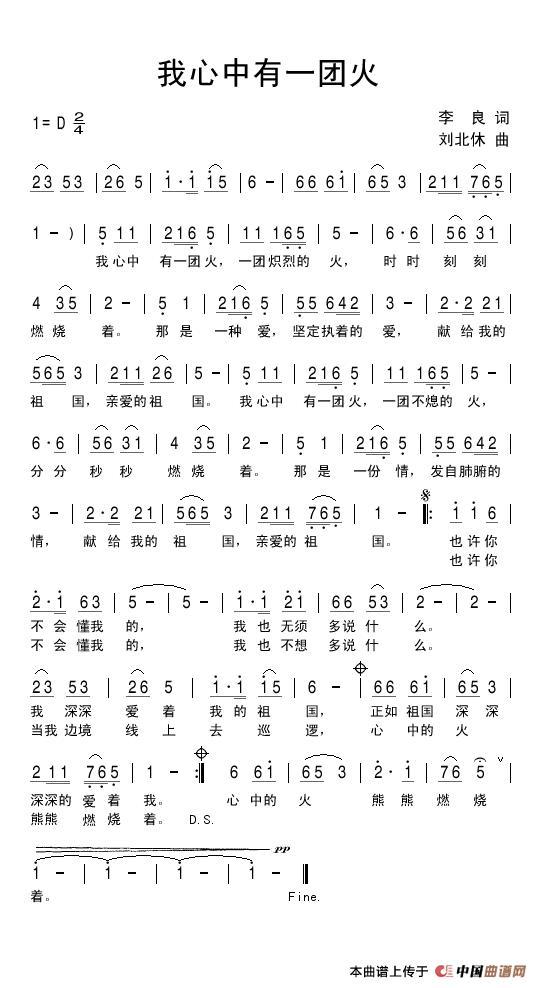 我心中有一团火
1=D 2/4
李 良 词
刘北休 曲
23 53 | 26 5 | 1·1 15 | 6 - | 66 61 | 65 3 | 211 765 |
1 - ) | 5 11 | 216 5 | 11 165 | 5 - | 6·6 | 56 31 |
我心中 有一团火, 一团炽烈的 火, 时 时 刻 刻
4 35 | 2 - | 5 1 | 216 5 | 55 642 | 3 - | 2·2 21 |
燃 烧 着。 那 是 一种 爱, 坚定执着的 爱, 献 给 我的
565 3 | 211 26 | 5 - | 5 11 | 216 5 | 11 165 | 5 - |
祖 国, 亲爱的 祖 国。 我心中 有一团火, 一团不熄的 火,
6·6 | 56 31 | 4 35 | 2 - | 5 1 | 216 5 | 55 642 |
分 分 秒 秒 燃 烧 着。 那 是 一份 情, 发自肺腑的
3 - | 2·2 21 | 565 3 | 211 765 | 1 - 𝄋 |: 1 1 6 |
情, 献 给 我的 祖 国, 亲爱的 祖 国。 也 许 你
也 许 你
2·1 63 | 5 - | 5 - | 1·1 21 | 66 53 | 2 - | 2 - |
不 会 懂我 的, 我 也 无须 多说 什 么。
不 会 懂我 的, 我 也 不想 多说 什 么。
23 53 | 26 5 | 1·1 15 | 6 - | 66 61 | 65 3 |
我 深深 爱 着 我 的 祖 国, 正如 祖国 深 深
当我 边境 线 上 去 巡 逻, 心 中的 火
2 11 765 | 1 - :| 6 61 | 65 3 | 2·1 | 76 5 ∨ |
深深的 爱 着 我。 心 中的 火 熊 熊 燃 烧
熊熊 燃 烧 着。 D.S.
pp
1 - | 1 - | 1 - | 1 - ‖
着。 Fine.
本曲谱上传于 中国曲谱网